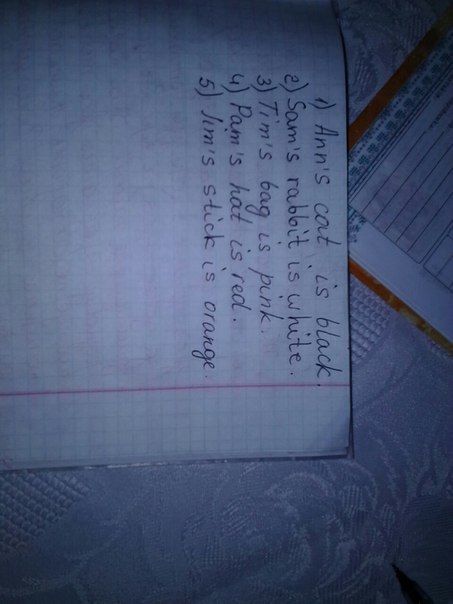 1) Ann's cat is black.
2) Sam's rabbit is white.
3) Tim's bag is pink.
4) Pam's hat is red.
5) Jim's stick is orange.